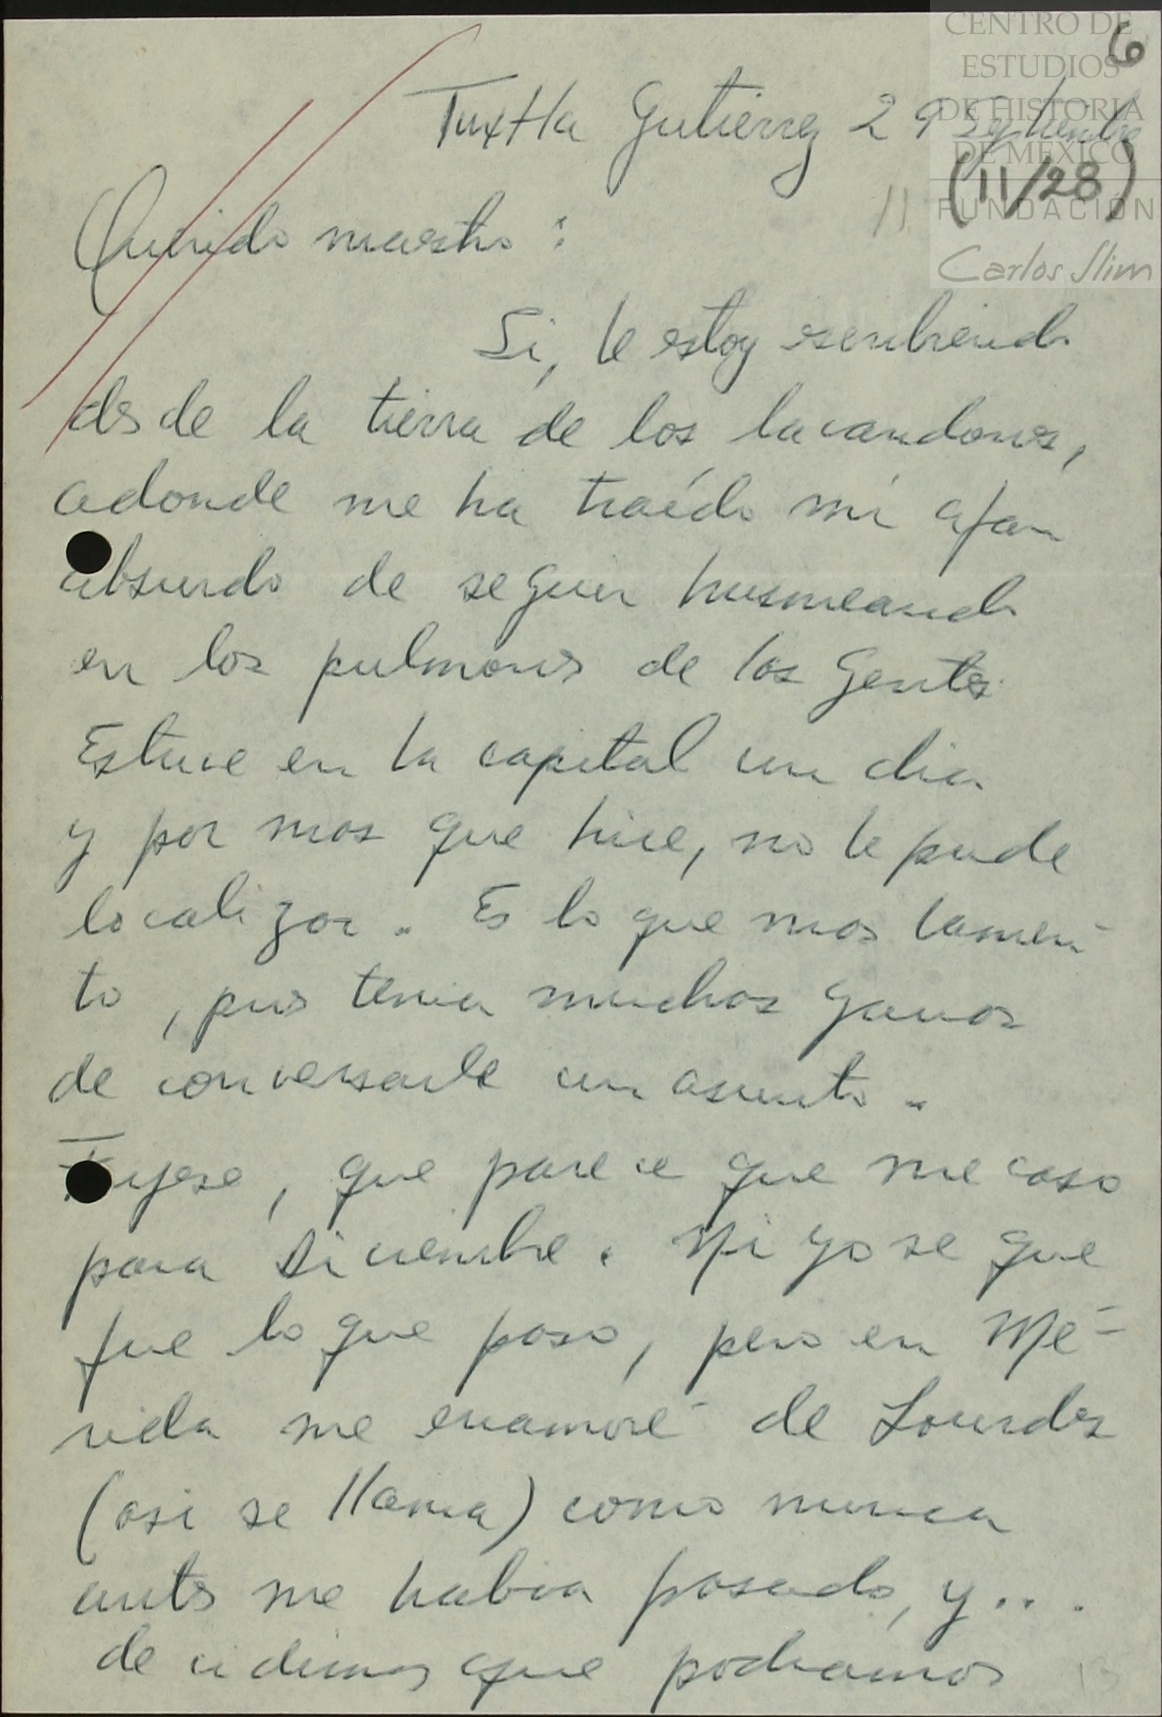 CENTRO DE
ESTUDIOS
DE HISTORIA
DE MÉXICO
FUNDACIÓN
Carlos Slim
6
Tuxtla Gutierrez 29 Septiembre
(11/28)
Querido maestro:
Si, le estoy escribiendo
desde la tierra de los lacandones,
adonde me ha traído mi afan
absurdo de seguir husmeando
en los pulmones de las gentes.
Estuve en la capital un dia
y por mas que hice, no le pude
localizar. Es lo que mas lamen-
to, pues tenia muchas ganas
de conversarle un asunto.
Fijese, que parece que me caso
para Diciembre. Ni yo se que
fue lo que paso, pero en Mé-
rida me enamoré de Lourdes
(asi se llama) como nunca
antes me habia pasado, y...
decidimos que podriamos